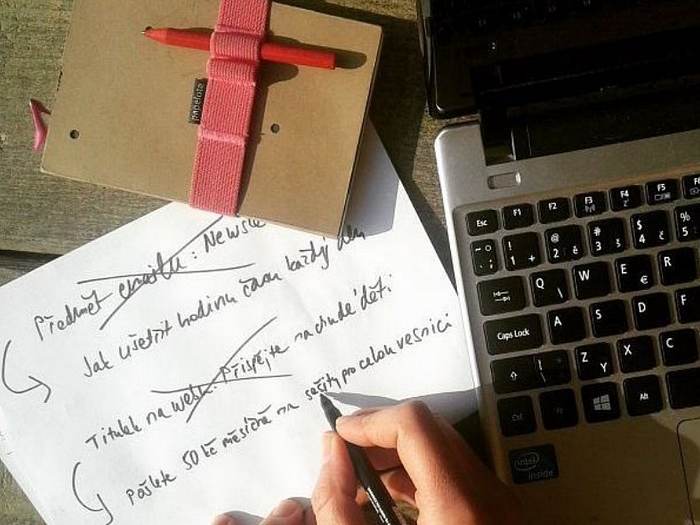 papelote
Předmět emailu: Newsle
Jak ušetřit hodinu času každý den
Titulek na webu: Přispějte na chudé děti
Pošlete 50 kč měsíčně na sešity pro celou vesnici
Esc F1 F2 F3 F4 F5 F6
Q W E R
Caps Lock A S D F
Z Y X C
Ctrl Fn Alt
intel inside